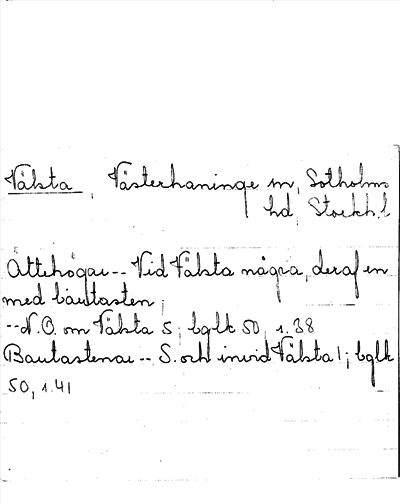 Välsta, Västerhaninge sn, Sotholms
hd, Stockh.l
Ättehögar -- Vid Välsta några, deraf en
med bautasten;
-- N.O. om Välsta 5; bglk 50, 1.38
Bautastenar -- S. och invid Välsta 1; bglk
50, 1.41